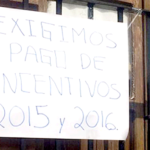 EXIGIMOS
PAGO DE
INCENTIVOS
2015 y 2016